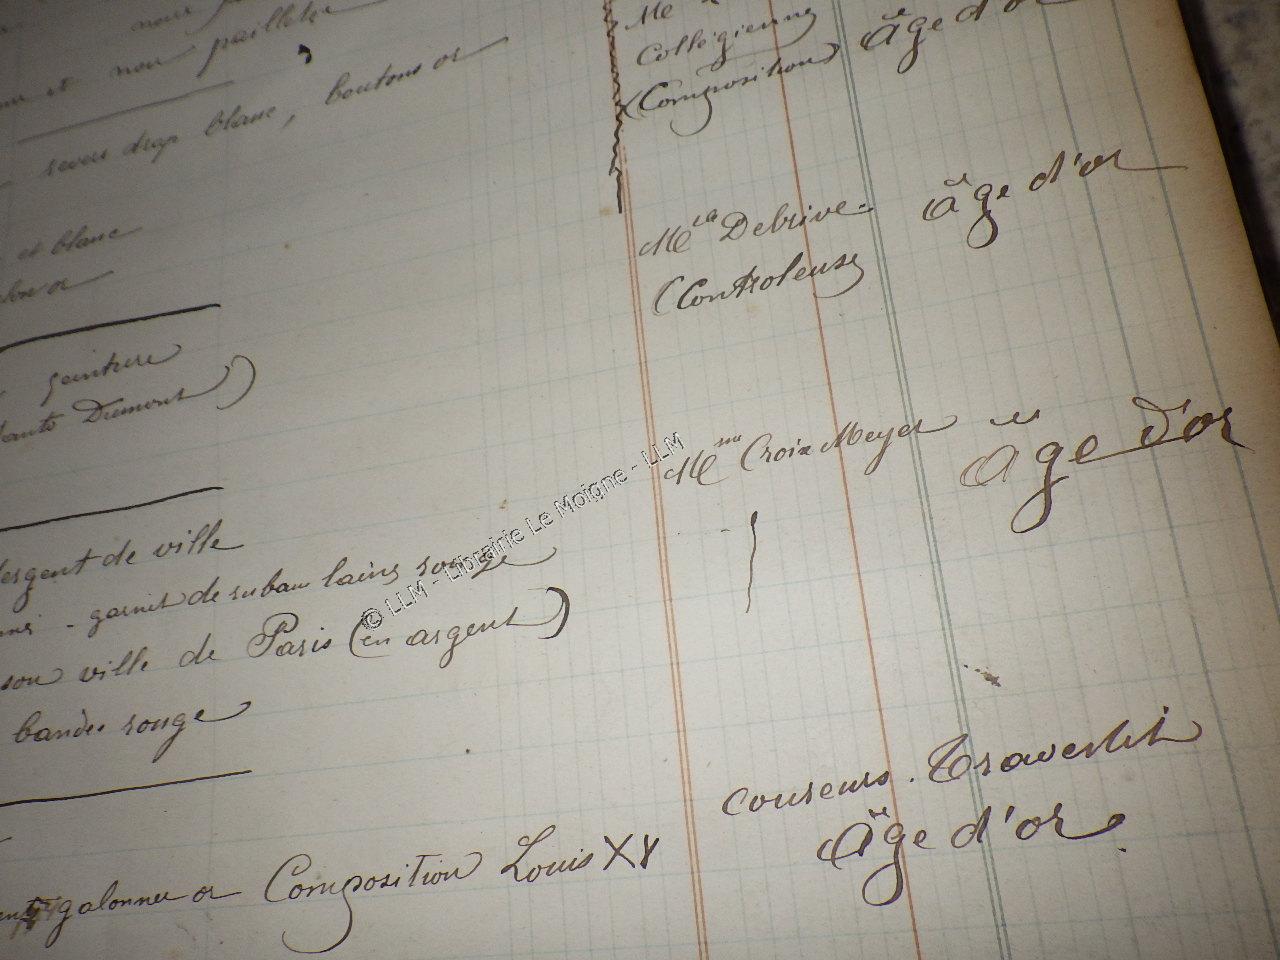 et noir pailletée
revers drap blanc, boutons or
et blanc
or
ceinture
Dumont)
Sergent de ville
garnit de ruban laine rouge
ville de Paris (en argent)
bandes rouge
galonner or Composition Louis XV
Collégienne
(Composition) âge d'or
Mlle Debrive. âge d'or
(Controleuse
Mme Croix Meyer âge d'or
coureurs. Travestit
âge d'or
© LLM - Librairie Le Moigne - LLM